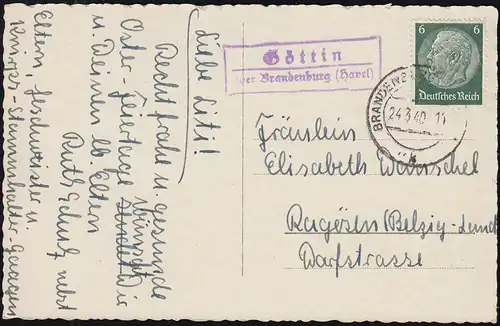 Liebe Liti!
Recht frohe u. gesunde
Oster-Feiertage wünscht Dir
u. Deinen lb. Eltern
Ruth nebst
Eltern, Geschwister u.
Knirps-Stammhalter
Göttin
über Brandenburg (Havel)
BRANDENBURG
24.3.40
6 6
Deutsches Reich
Fräulein
Elisabeth
Ragösen (Belzig-Land)
Dorfstrasse